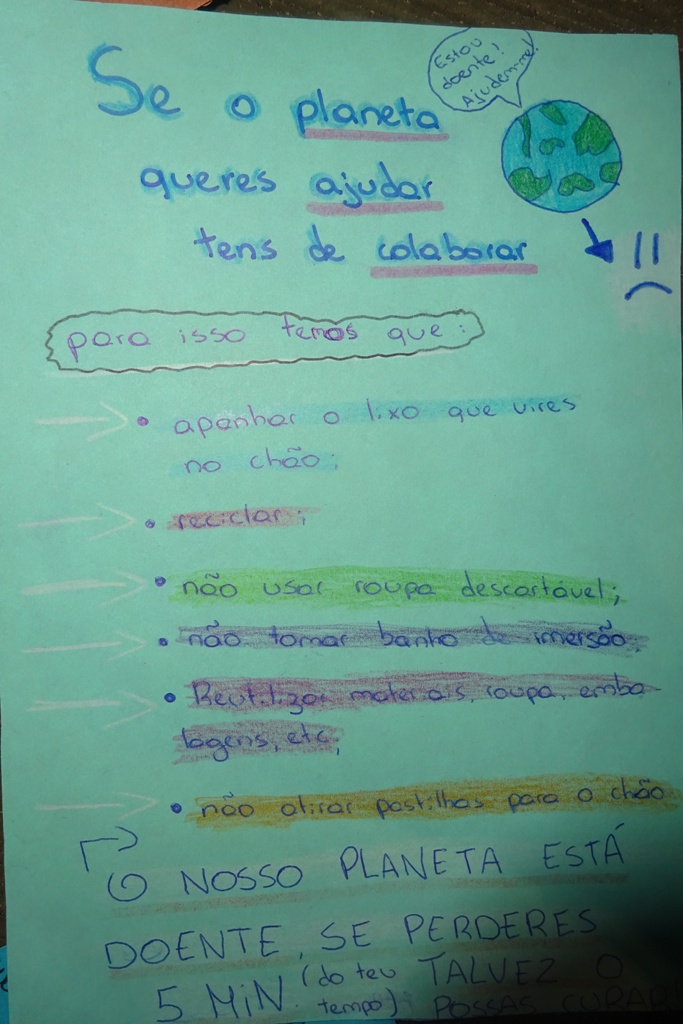 Estou
doente!
Ajudem-me!
Se o planeta
queres ajudar
tens de colaborar
para isso temos que:
• apanhar o lixo que vires
no chão;
• reciclar;
• não usar roupa descartável;
• não tomar banho de imersão;
• Reutilizar materiais, roupa, emba-
lagens, etc;
• não atirar pastilhas para o chão
O NOSSO PLANETA ESTÁ
DOENTE, SE PERDERES
5 MIN. (do teu tempo) TALVEZ O
POSSAS CURAR